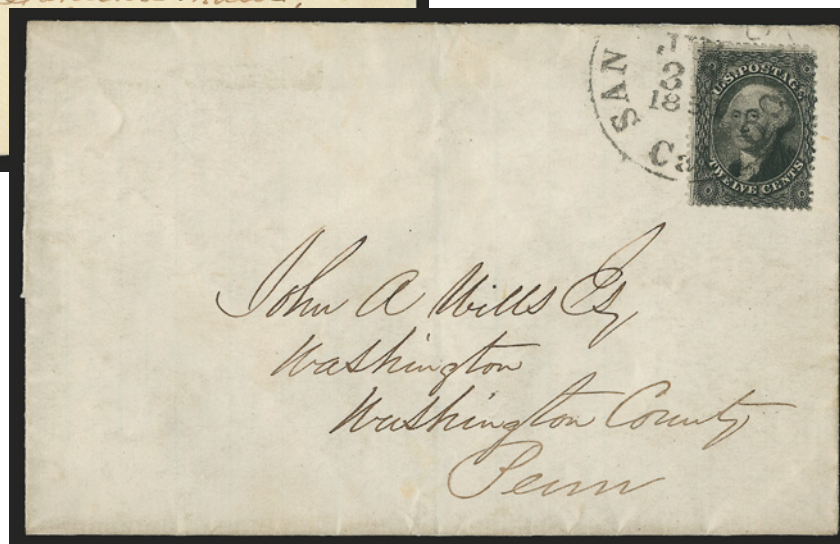 SAN
3
18
Ca
U.S. POSTAGE
TWELVE CENTS
John A Wills Esq
Washington
Washington County
Penn